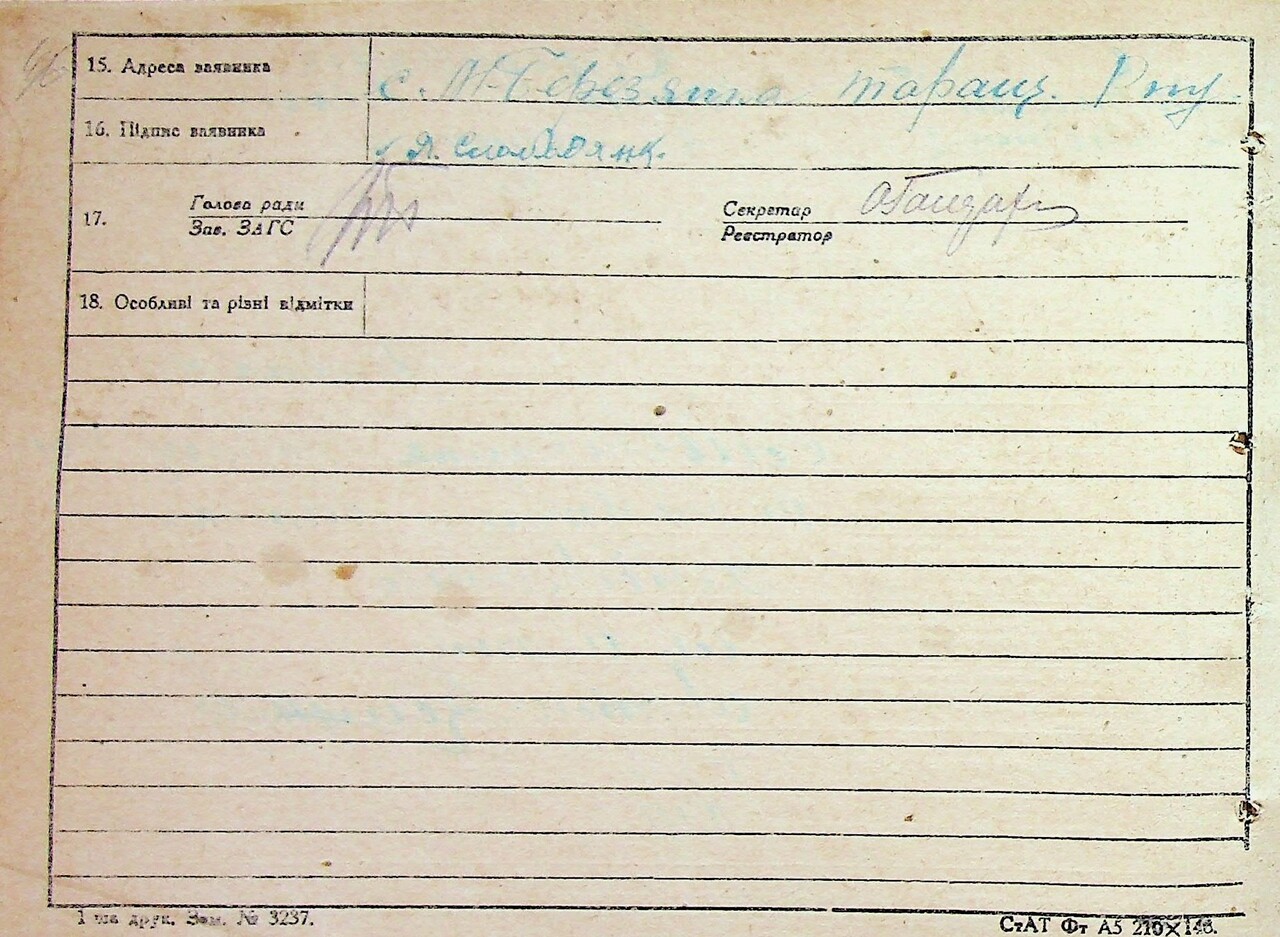 15. Адреса заявника с. М-Березянка таращ. Р ну
16. Підпис заявника Я. Слободянк.
17. Голова ради Секретар
Зав. ЗАГС Реєстратор
18. Особливі та різні відмітки
1 ша друк. Зам. № 3237. СтАТ Фт А5 210×148.